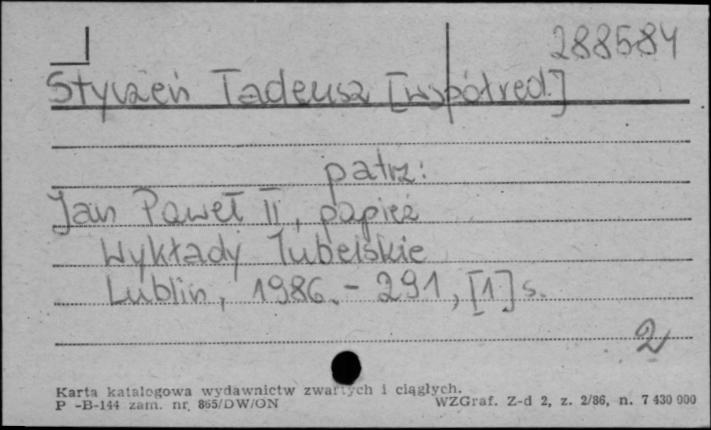 288584
Styczeń Tadeusz [współred.]
patrz:
Jan Paweł II, papież
Wykłady lubelskie
Lublin, 1986. - 291, [1] s.
2
Karta katalogowa wydawnictw zwartych i ciągłych.
P -B-144 zam. nr. 865/DW/ON WZGraf. Z-d 2, z. 2/86, n. 7 430 000